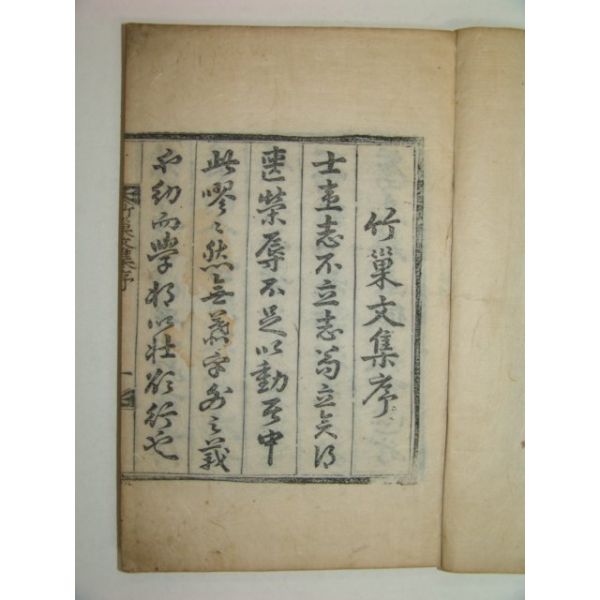 竹巢文集序
士患志不立志苟立矣得
喪榮辱不足以動其中
此嘐〻然無慕乎外之義
幼而學将以壯欲行也
竹巢文集序
一